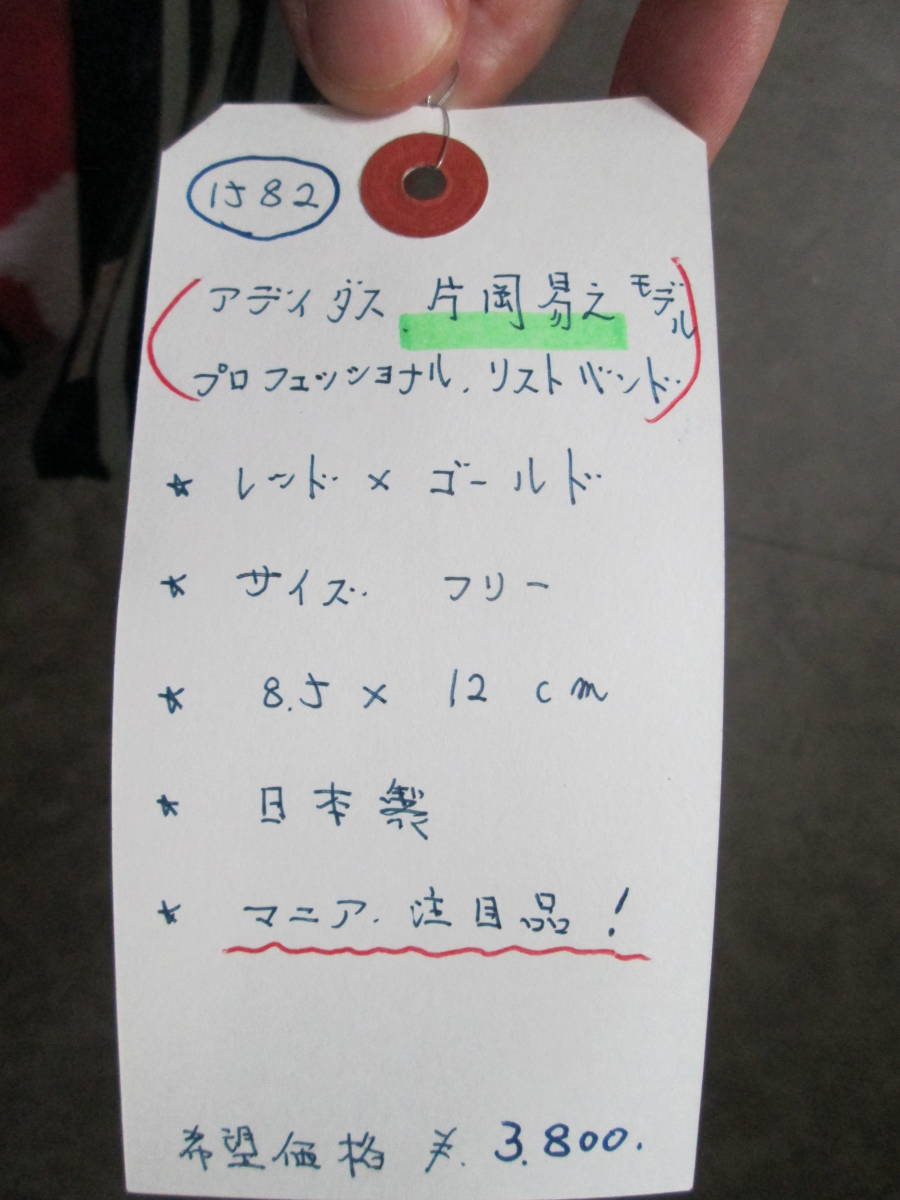 1582
アディダス 片岡易之モデル
プロフェッショナル.リストバンド
★ レッド × ゴールド
★ サイズ. フリー
★ 8.5 × 12 cm
★ 日本製
★ マニア.注目品!
希望価格 ¥.3.800.